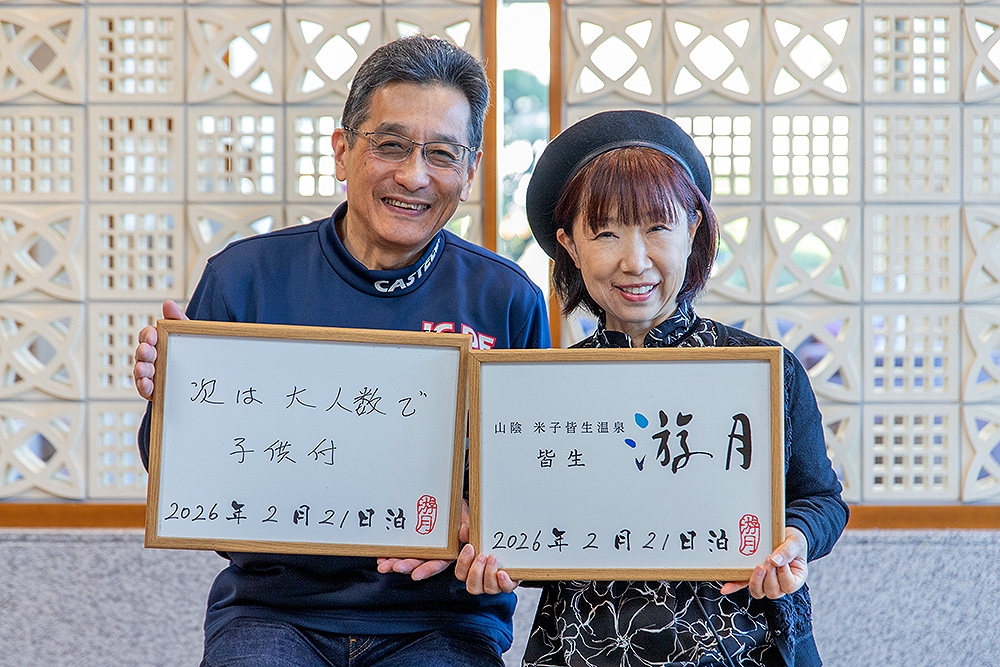 CASTEL
次は大人数で
子供付
2026年2月21日泊
游月
山陰 米子皆生温泉
皆生 游月
2026年2月21日泊
游月